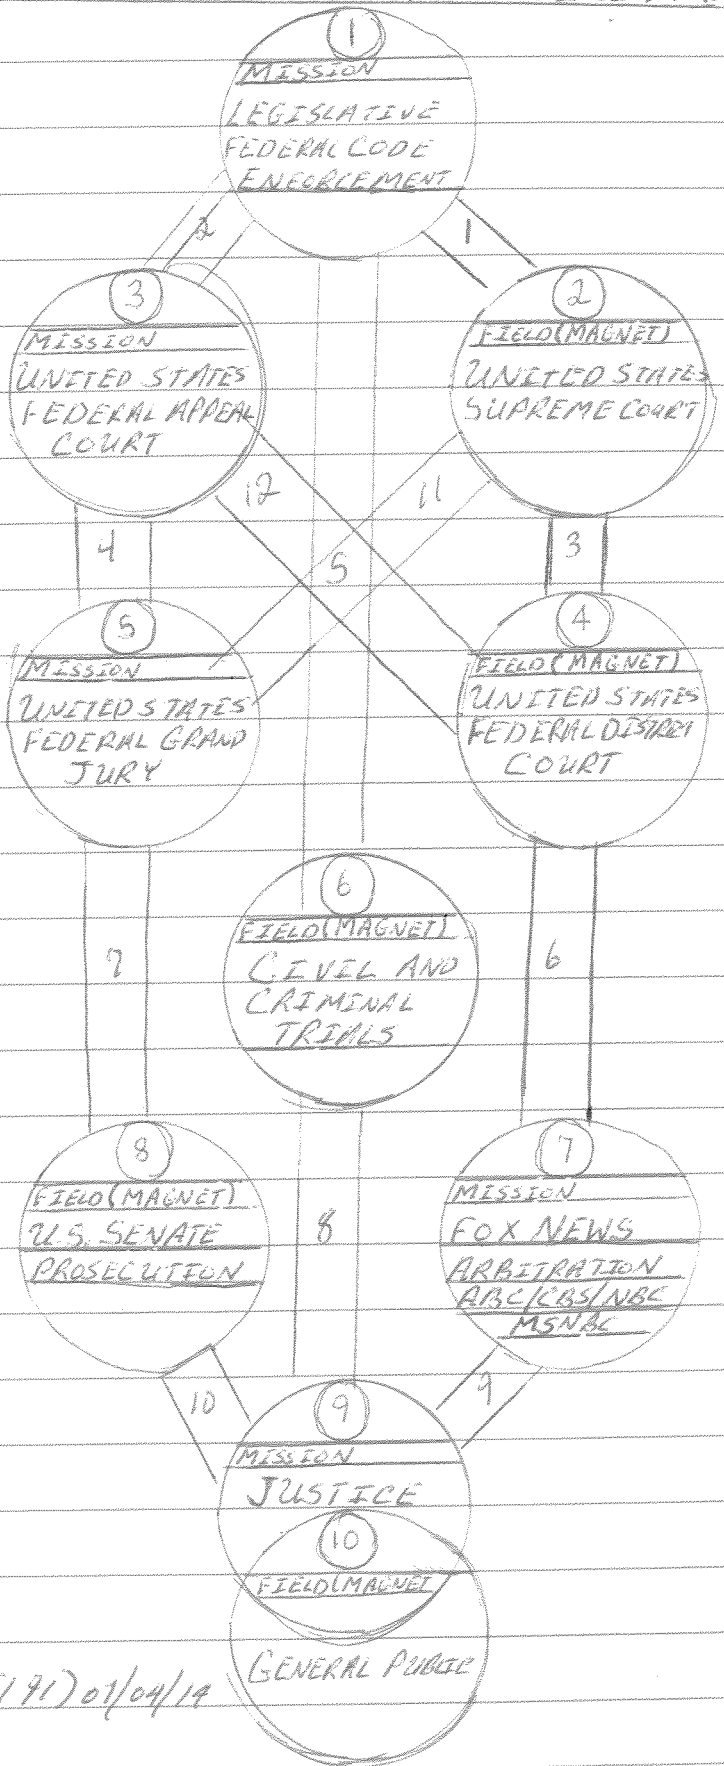 1
MISSION
LEGISLATIVE
FEDERAL CODE
ENFORCEMENT
2
1
3
MISSION
UNITED STATES
FEDERAL APPEAL
COURT
2
FIELD(MAGNET)
UNITED STATES
SUPREME COURT
12
11
4
5
3
5
MISSION
UNITED STATES
FEDERAL GRAND
JURY
4
FIELD(MAGNET)
UNITED STATES
FEDERAL DISTRICT
COURT
6
FIELD(MAGNET)
CIVIL AND
CRIMINAL
TRIALS
7
6
8
FIELD(MAGNET)
U.S. SENATE
PROSECUTION
8
7
MISSION
FOX NEWS
ARBITRATION
ABC/CBS/NBC
MSNBC
10
9
9
MISSION
JUSTICE
10
FIELD(MAGNET
GENERAL PUBLIC